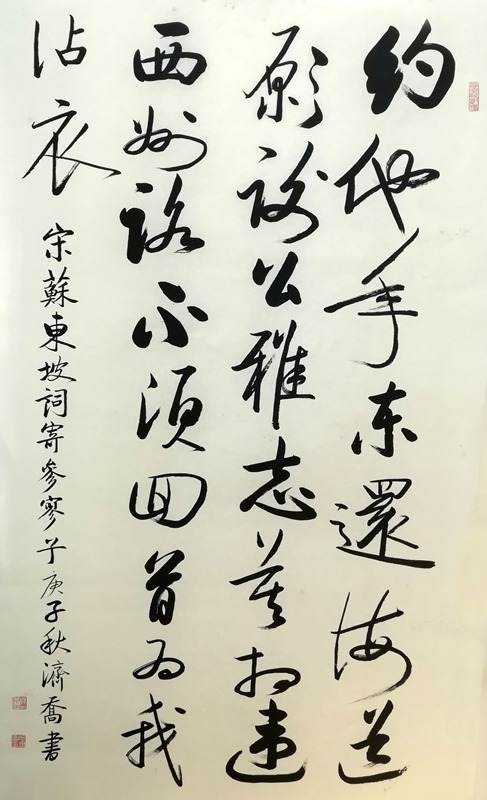 約他年东還海道
願謝公雅志莫相違
西州路不須回首为我
沾衣
宋蘇東坡詞寄參寥子庚子秋濟喬書